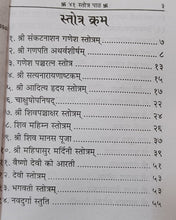 ५१ स्तोत्र पाठ ३
स्तोत्र क्रम
१. श्री संकटनाशन गणेश स्तोत्रम् ७
२. श्री गणपति अथर्वशीर्षम् ९
३. गणेश पञ्चरत्न स्तोत्रम् १३
४. श्री सत्यनारायणाष्टकम् १५
५. श्री आदित्य हृदय स्तोत्रम् १७
६. चाक्षुषोपनिषद् २३
७. श्री शिवपञ्चाक्षर स्तोत्रम् २५
८. शिव महिम्न स्तोत्रम् २७
९. श्री शिव मानस पूजा ३९
१०. श्री महिषासुर मर्दिनी स्तोत्रम् ४१
११. वैष्णो देवी की आरती ४९
१२. देवी स्तोत्रम् ५१
१३. भगवती स्तोत्रम् ५३
१४. नवदुर्गा स्तुति ५५